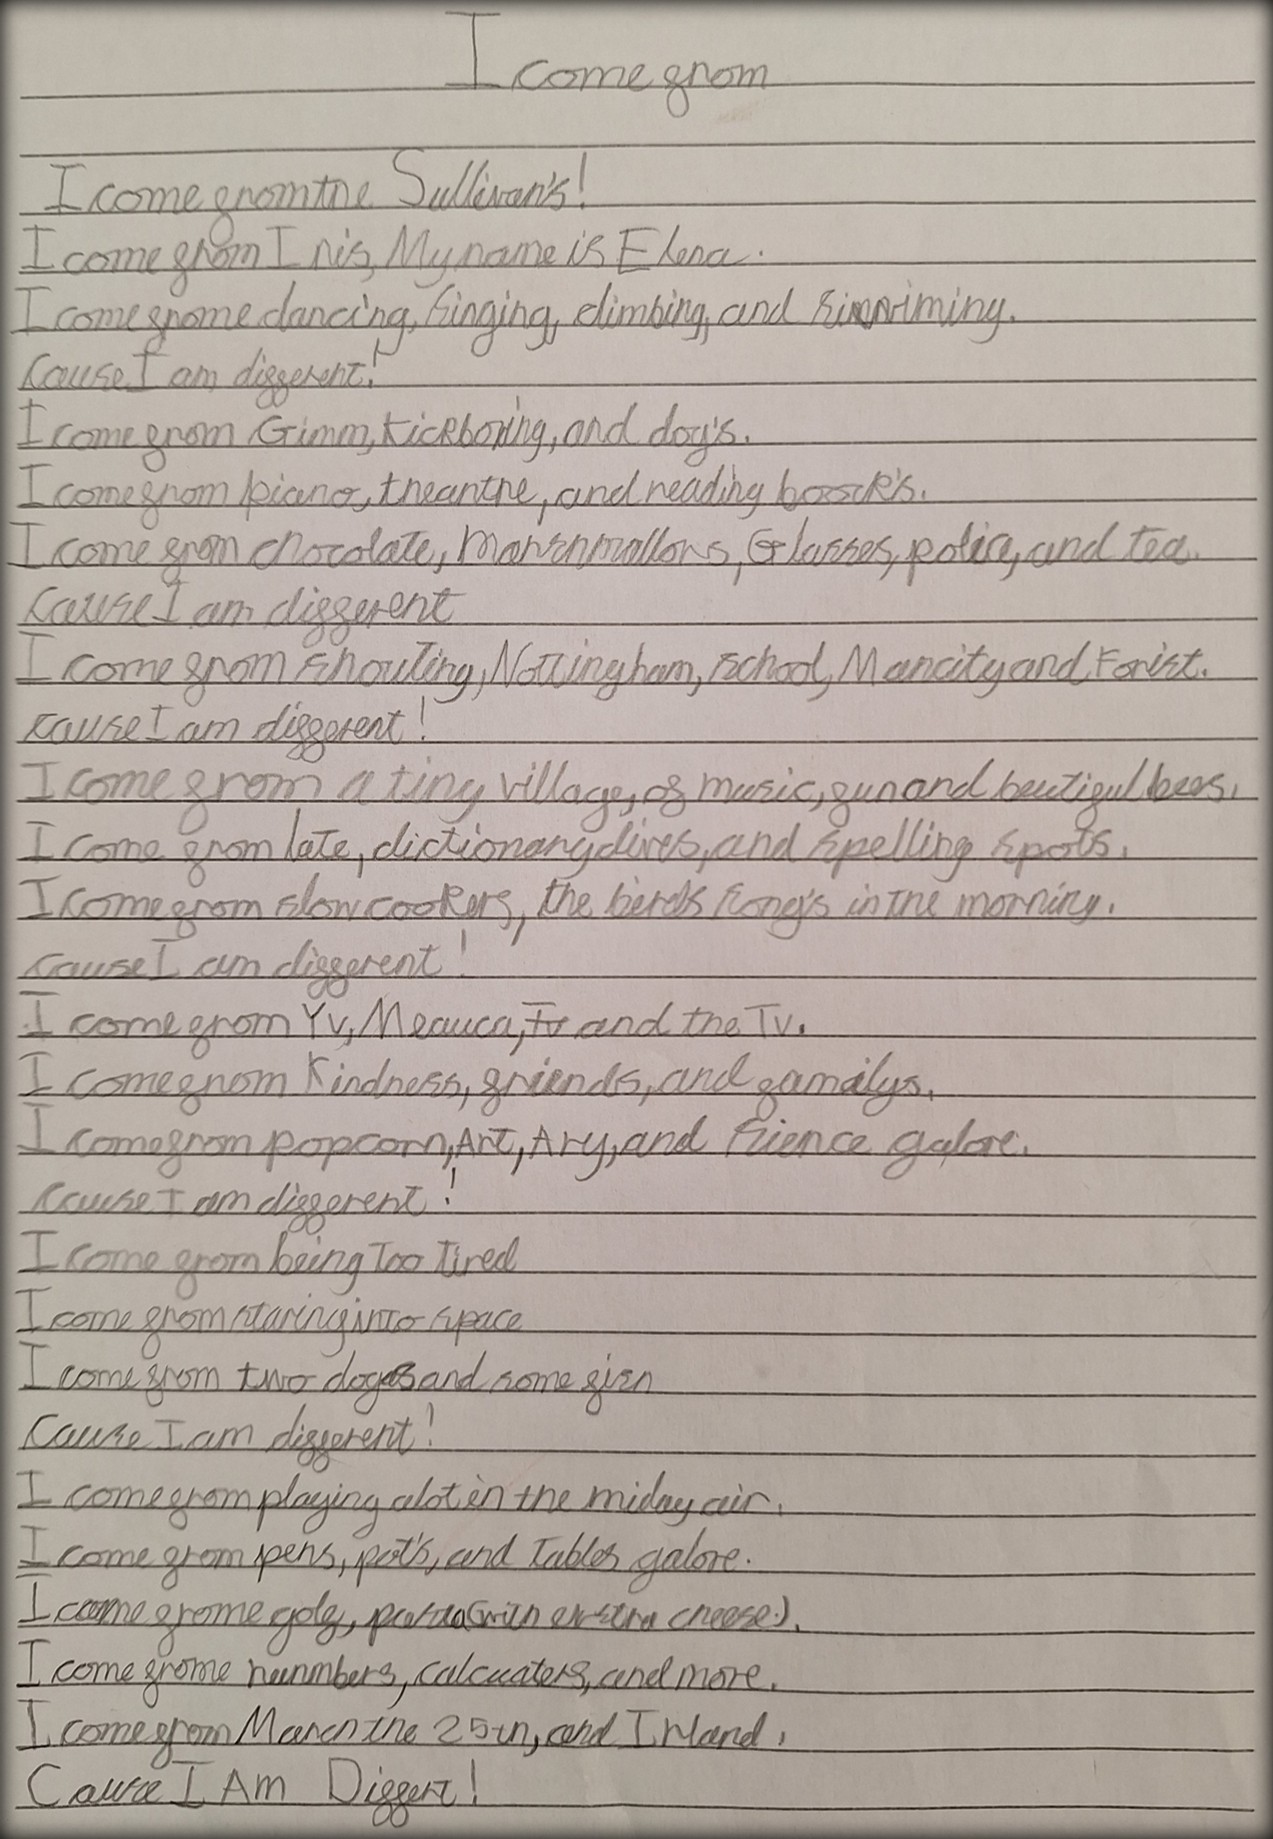 I come from
I come from the Sullivan's!
I come from Iris, My name is Elena.
I come frome dancing, singing, climbing, and simming.
Cause I am different!
I come from Gimm, kickboxing, and dog's.
I come from piano, theantre, and reading boock's.
I come from chocolate, marshmallows, Glasses, policy, and tea.
Cause I am different
I come from shouting, Nottingham, school, Mancity and Forist.
cause I am different!
I come from a tiny village, of music, fun and beutiful bees.
I come from late, dictionary dives, and spelling spots.
I come from slow cookers, the birds song's in the morning.
cause I am different!
I come from Yv, Meauca, Tv and the Tv.
I come from Kindness, friends, and familys.
I come from popcorn, Art, Ary, and sience galore.
Cause I am different!
I come from being Too Tired
I come from staring into space
I come from two dogs and some fish
Cause I am different!
I come from playing alot in the miday air.
I come from pens, pot's, and Tables galore.
I come frome golf, pasta (with exstra cheese.).
I come frome nunmbers, calcuaters, and more.
I come from March the 25th, and Irland.
Cause I Am Differt!